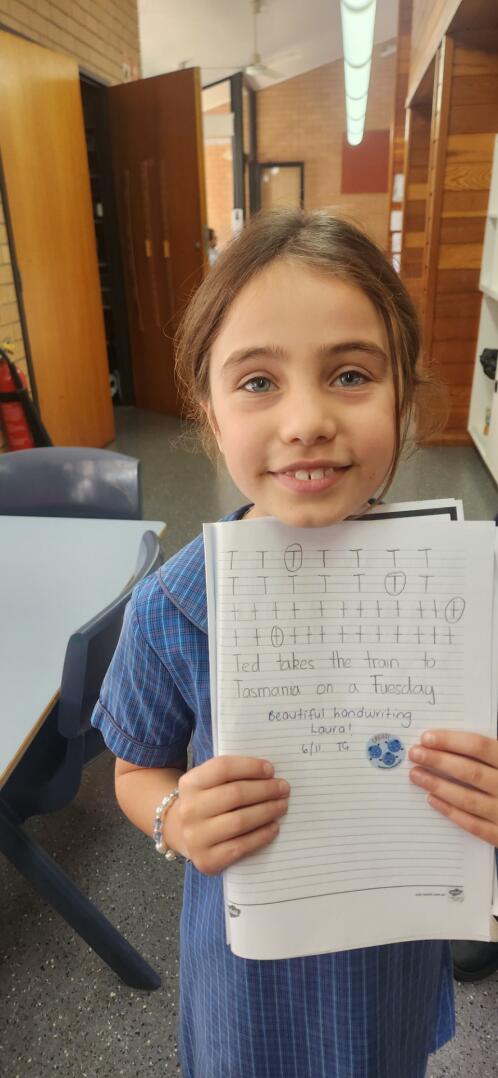 T T T T T T T
T T T T T T T
t t t t t t t t t t t t
t t t t t t t t t t t t
Ted takes the train to
Tasmania on a Tuesday
Beautiful handwriting
Laura!
6/11 TG
GREAT